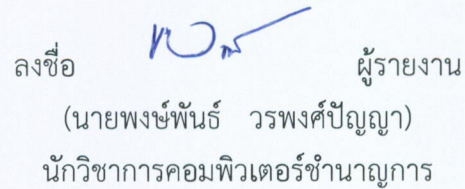 ลงชื่อ ผู้รายงาน
(นายพงษ์พันธ์ วรพงศ์ปัญญา)
นักวิชาการคอมพิวเตอร์ชำนาญการ